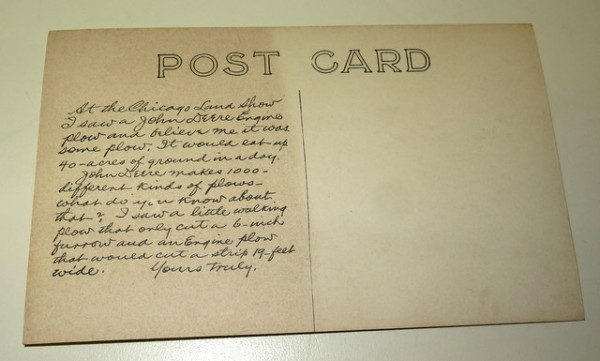 POST CARD
At the Chicago Land Show
I saw a John Deere Engine
plow and believe me it was
some plow. It would eat up
40-acres of ground in a day.
John Deere makes 1000-
different kinds of plows-
what do you know about
that? I saw a little walking
plow that only cut a 6-inch
furrow and an Engine plow
that would cut a strip 19-feet
wide. Yours truly,